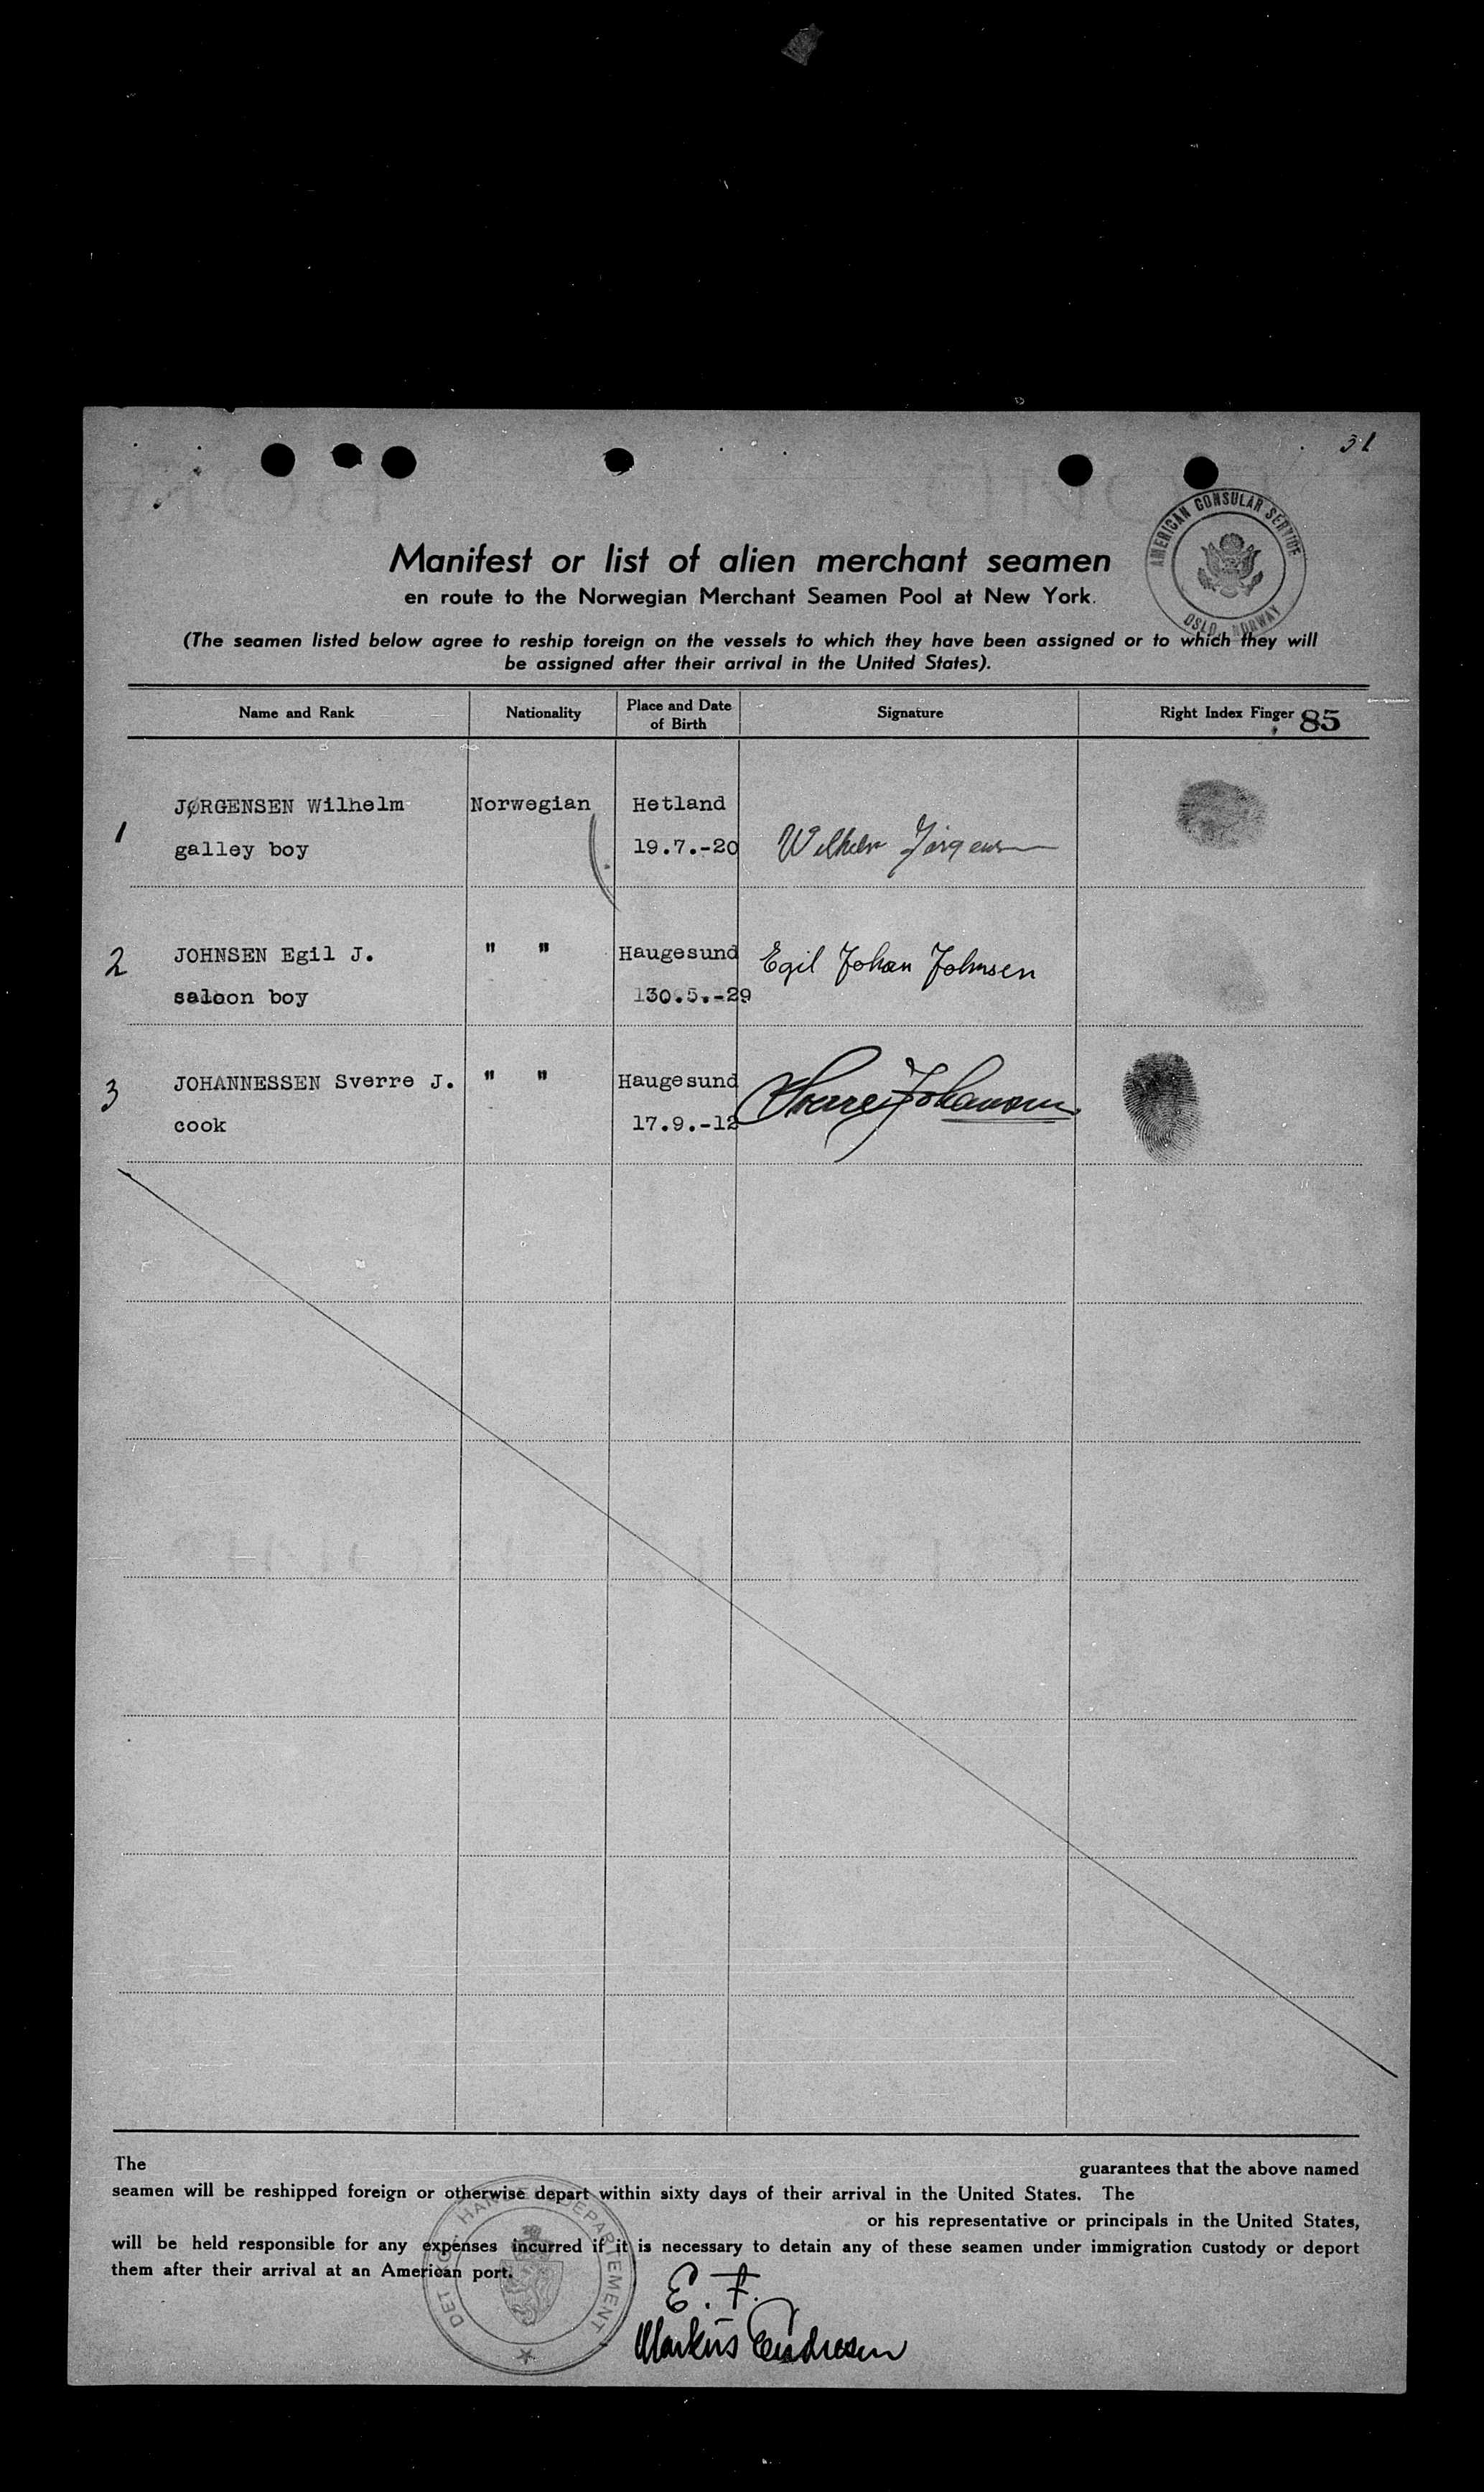 31
AMERICAN CONSULAR SERVICE
OSLO, NORWAY
Manifest or list of alien merchant seamen
en route to the Norwegian Merchant Seamen Pool at New York.
(The seamen listed below agree to reship foreign on the vessels to which they have been assigned or to which they will
be assigned after their arrival in the United States).
Name and Rank Nationality Place and Date of Birth Signature Right Index Finger 85
JØRGENSEN Wilhelm Norwegian Hetland
1 galley boy 19.7.-20 Wilhelm Jørgensen
2 JOHNSEN Egil J. " " Haugesund Egil Johan Johnsen
saloon boy 30.5.-29
3 JOHANNESSEN Sverre J. " " Haugesund Sverre Johannesen
cook 17.9.-12
The guarantees that the above named
seamen will be reshipped foreign or otherwise depart within sixty days of their arrival in the United States. The
or his representative or principals in the United States,
will be held responsible for any expenses incurred if it is necessary to detain any of these seamen under immigration custody or deport
them after their arrival at an American port.
DET KGL. HANDELSDEPARTEMENT
E. F.
Markus Endresen